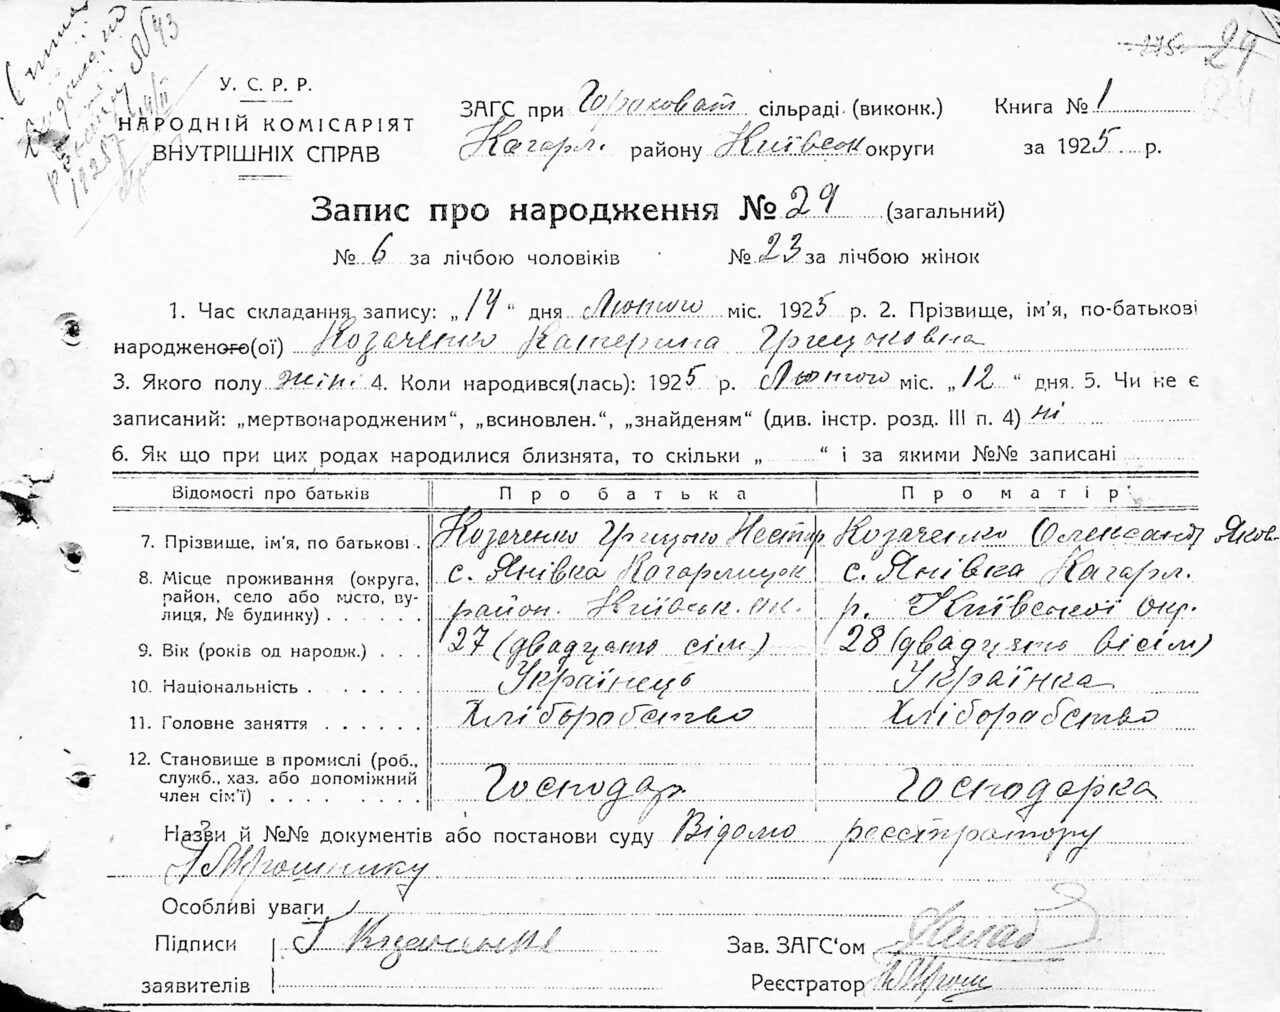 175 29
124
У. С. Р. Р.
НАРОДНІЙ КОМІСАРІЯТ
ВНУТРІШНІХ СПРАВ
ЗАГС при Гороховат сільраді (виконк.)
Кагарл. району Київськ округи
Книга № 1
за 1925 р.
Запис про народження № 29 (загальний)
№ 6 за лічбою чоловіків № 23 за лічбою жінок
1. Час складання запису: „14“ дня Лютого міс. 1925 р. 2. Прізвище, ім'я, по-батькові
народженого(ої) Козаченко Катерина Грицьковна
3. Якого полу жін. 4. Коли народився(лась): 1925 р. Лютого міс. „12“ дня. 5. Чи не є
записаний: „мертвонародженим“, „всиновлен.“, „знайденям“ (див. інстр. розд. III п. 4) ні
6. Як що при цих родах народилися близнята, то скільки „ “ і за якими №№ записані
Відомості про батьків Про батька Про матір
7. Прізвище, ім'я, по батькові . Козаченко Грицько Нестор Козаченко Олександ Яков.
8. Місце проживання (округа, с. Янівка Кагарлицьк с. Янівка Кагарл.
район, село або місто, ву-
лиця, № будинку) . . . . . . район. Київськ. ок. р. Київської окр.
9. Вік (років од народж.) . . . 27 (двадцять сім) 28 (двадцять вісім)
10. Національність . . . . . . . Українець Українка
11. Головне заняття . . . . . . Хліборобство Хліборобство
12. Становище в промислі (роб.,
служб., хаз. або допоміжний
член сім'ї) . . . . . . . . . Господар Господарка
Назви й №№ документів або постанови суду Відомо реєстратору
Особливі уваги
Підписи Г Козаченко Зав. ЗАГС'ом
заявителів Реєстратор